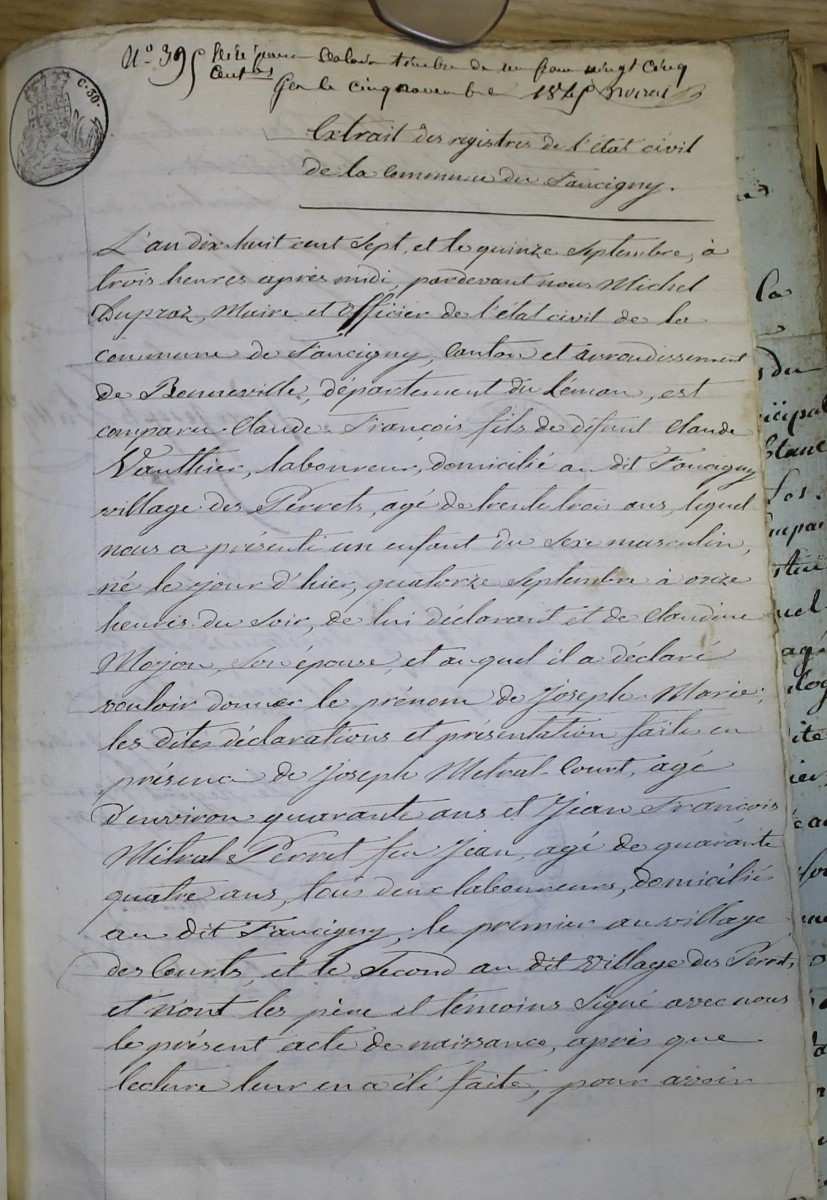 C. 30.
N.º 395
timbre de un franc vingt cinq
cent.es
Gen le cinq novembre 1845
Extrait des registres de l'état civil
de la Commune du Faucigny.
L'an dix huit cent Sept, et le quinze Septembre, à
trois heures après midi, pardevant nous Michel
Dupraz, Maire et Officier de l'état civil de la
commune de Faucigny, Canton et arrondissement
de Bonneville, département du Léman, est
comparu Claude François fils de défunt Claude
Vauthier, laboureur, domicilié au dit Faucigny
village des Perrets, agé de trente trois ans, lequel
nous a présenté un enfant du Sexe masculin,
né le jour d'hier, quatorze Septembre à onze
heures du Soir, de lui déclarant et de Claudine
Mojon, Son épouse, et auquel il a déclaré
vouloir donner le prénom de Joseph Marie;
les dites déclarations et présentation faite en
présence de Joseph Métral-Court, agé
d'environ quarante ans et Jean François
Métral Perret feu Jean, agé de quarante
quatre ans, tous deux laboureurs, domicilié
au dit Faucigny, le premier au village
des Courts, et le Second au dit village des Perrets,
et n'ont les père et témoins Signé avec nous
le présent acte de naissance, après que
lecture leur en a été faite, pour avoir